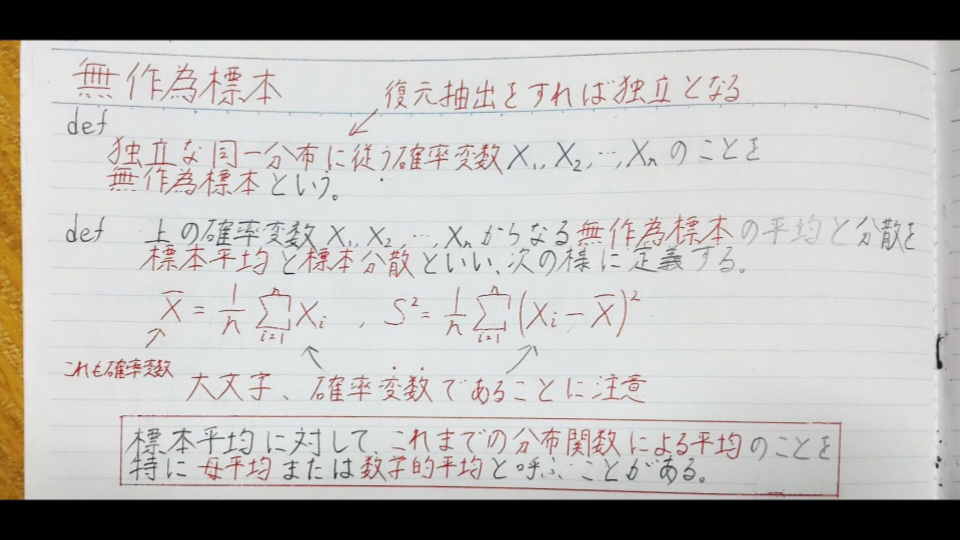 無作為標本
復元抽出をすれば独立となる
def
独立な同一分布に従う確率変数 X₁, X₂, …, Xₙ のことを
無作為標本という。
def 上の確率変数 X₁, X₂, …, Xₙ からなる無作為標本の平均と分散を
標本平均と標本分散といい、次の様に定義する。
X̄ = 1/n Σ_{i=1}^{n} Xᵢ , S² = 1/n Σ_{i=1}^{n} (Xᵢ − X̄)²
これも確率変数
大文字、確率変数であることに注意
標本平均に対して、これまでの分布関数による平均のことを
特に母平均または数学的平均と呼ぶことがある。